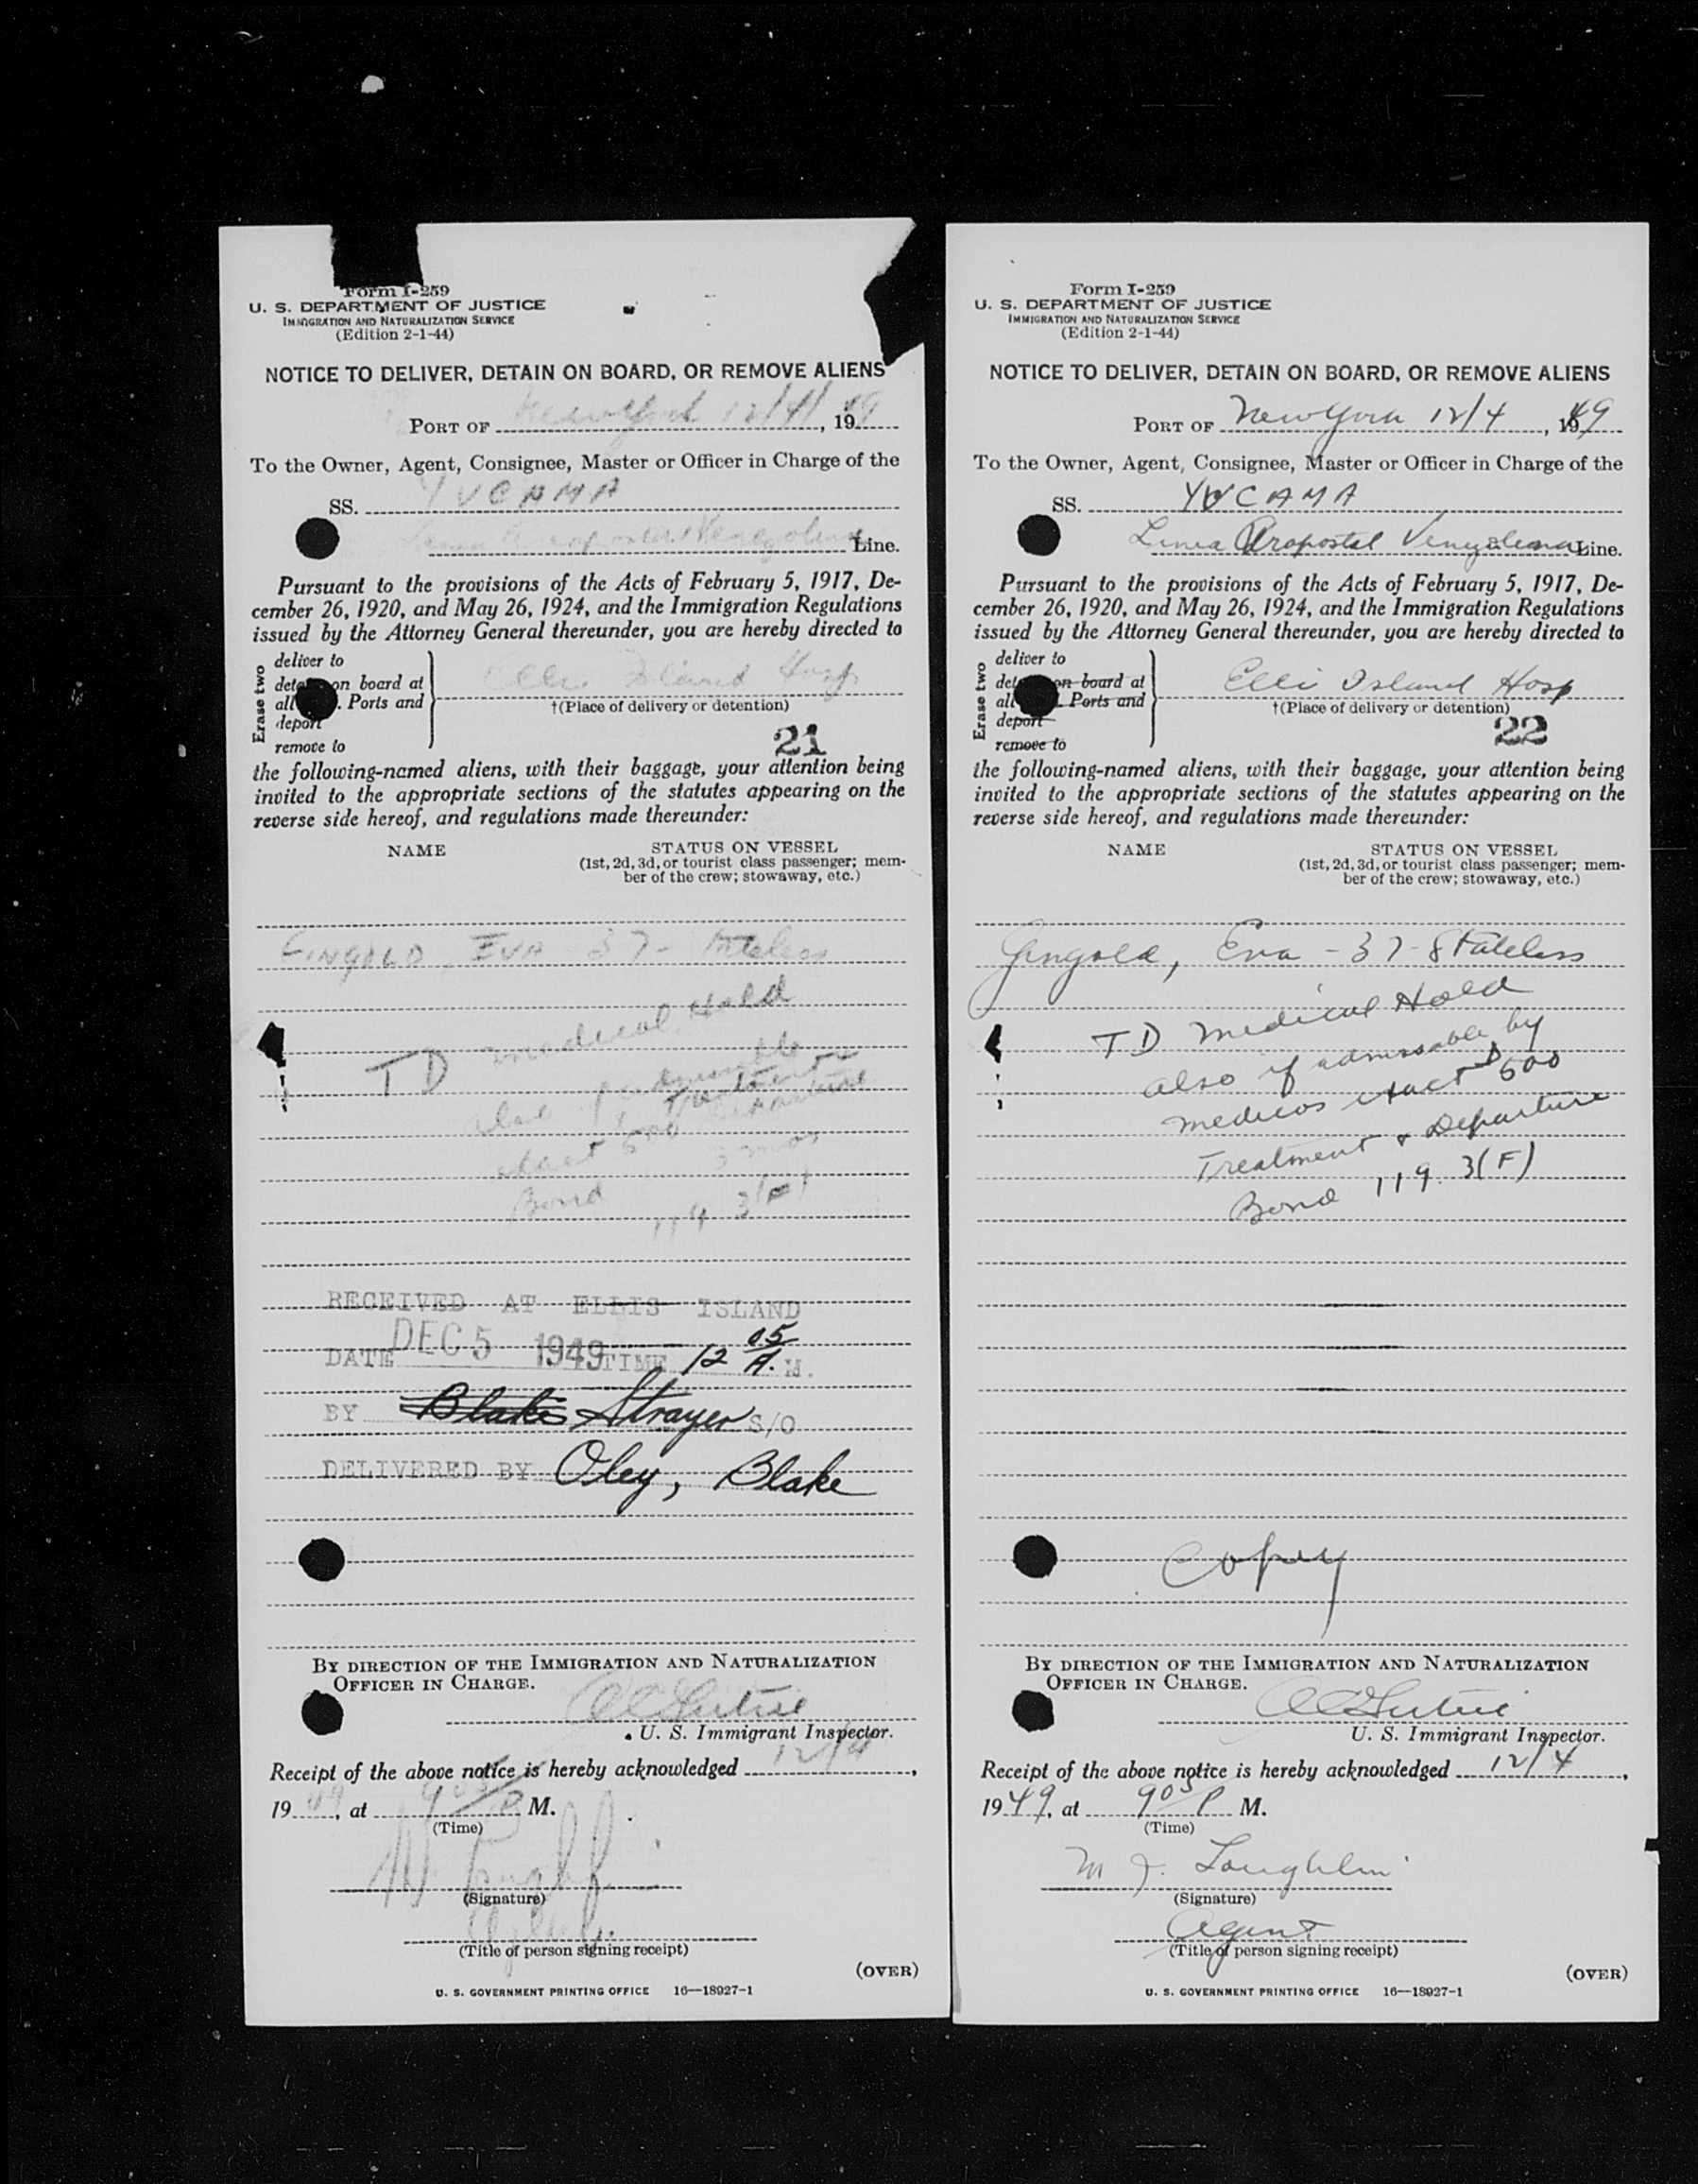 Form I-259
U. S. DEPARTMENT OF JUSTICE
IMMIGRATION AND NATURALIZATION SERVICE
(Edition 2-1-44)
NOTICE TO DELIVER, DETAIN ON BOARD, OR REMOVE ALIENS
PORT OF New York 12/4, 1949
To the Owner, Agent, Consignee, Master or Officer in Charge of the
SS. YVCAMA
Line.
Pursuant to the provisions of the Acts of February 5, 1917, De-
cember 26, 1920, and May 26, 1924, and the Immigration Regulations
issued by the Attorney General thereunder, you are hereby directed to
Erase two
deliver to
on board at
all . Ports and
deport
remove to
Ellis Island Hosp
†(Place of delivery or detention)
21
the following-named aliens, with their baggage, your attention being
invited to the appropriate sections of the statutes appearing on the
reverse side hereof, and regulations made thereunder:
NAME
STATUS ON VESSEL
(1st, 2d, 3d, or tourist class passenger; mem-
ber of the crew; stowaway, etc.)
GINGOLD, EVA 37- Stateless
TD medical Hold
also if admissable
Treatment
exact 500 Departure
3 mos
Bond
119 3(F)
RECEIVED AT ELLIS ISLAND
DATE DEC 5 1949 TIME 12 05 A. M.
BY Blake Strayer S/O
DELIVERED BY Oley, Blake
BY DIRECTION OF THE IMMIGRATION AND NATURALIZATION
OFFICER IN CHARGE.
U. S. Immigrant Inspector.
Receipt of the above notice is hereby acknowledged 12/4,
1949, at 9 05 P M.
(Time)
(Signature)
(Title of person signing receipt)
(OVER)
U. S. GOVERNMENT PRINTING OFFICE 16—18927-1
Form I-259
U. S. DEPARTMENT OF JUSTICE
IMMIGRATION AND NATURALIZATION SERVICE
(Edition 2-1-44)
NOTICE TO DELIVER, DETAIN ON BOARD, OR REMOVE ALIENS
PORT OF New York 12/4, 1949
To the Owner, Agent, Consignee, Master or Officer in Charge of the
SS. YVCAMA
Linea Aropostal Venezalena Line.
Pursuant to the provisions of the Acts of February 5, 1917, De-
cember 26, 1920, and May 26, 1924, and the Immigration Regulations
issued by the Attorney General thereunder, you are hereby directed to
Erase two
deliver to
on board at
all . Ports and
deport
remove to
Elli Island Hosp
†(Place of delivery or detention)
22
the following-named aliens, with their baggage, your attention being
invited to the appropriate sections of the statutes appearing on the
reverse side hereof, and regulations made thereunder:
NAME
STATUS ON VESSEL
(1st, 2d, 3d, or tourist class passenger; mem-
ber of the crew; stowaway, etc.)
Gingold, Eva - 37 - Stateless
TD medical Hold
also if admissable by
medicos exact $500
Treatment & Departure
Bond 119 3(F)
Copy
BY DIRECTION OF THE IMMIGRATION AND NATURALIZATION
OFFICER IN CHARGE.
U. S. Immigrant Inspector.
Receipt of the above notice is hereby acknowledged 12/4,
1949, at 9 05 P M.
(Time)
M J. Loughlin
(Signature)
Agent
(Title of person signing receipt)
(OVER)
U. S. GOVERNMENT PRINTING OFFICE 16—18927-1